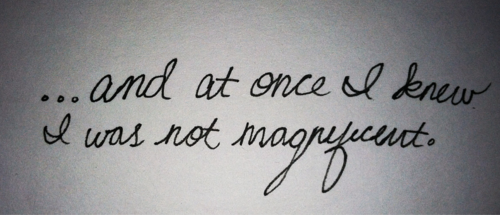 ...and at once I knew
I was not magnificent.